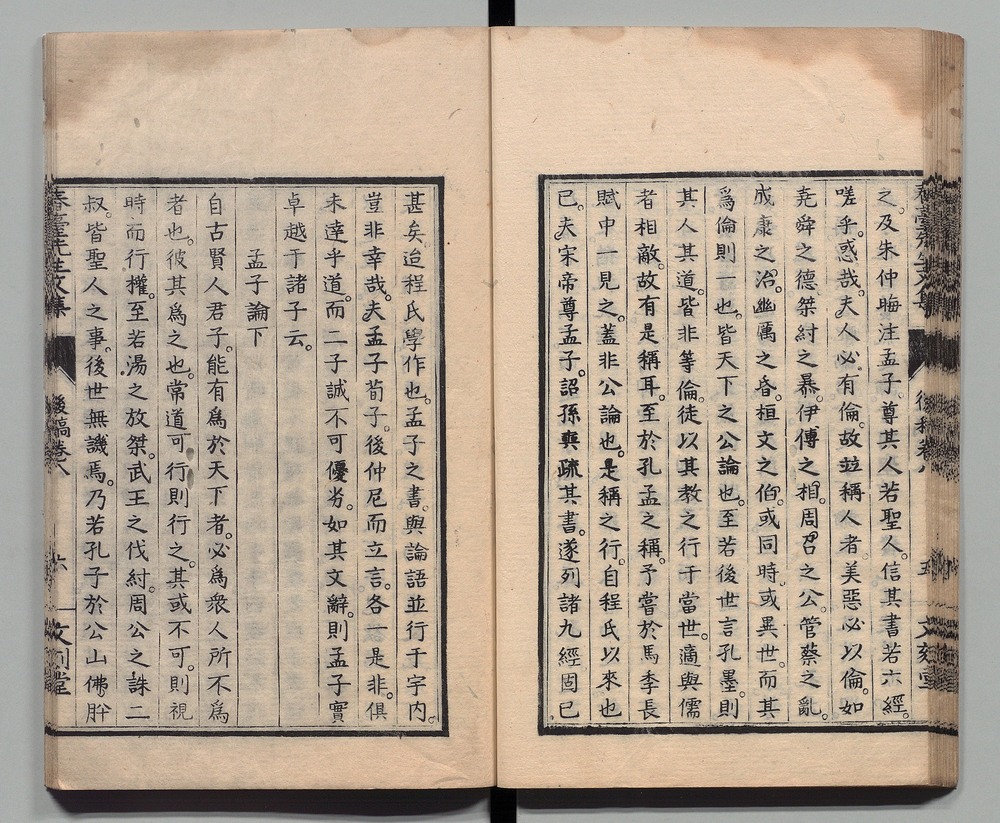 之。及朱仲晦注孟子。尊其人若聖人。信其書若六經。
嗟乎。惑哉。夫人必有倫。故竝稱人者。美惡必以倫。如
堯舜之德。桀紂之暴。伊傅之相。周召之公。管蔡之亂。
成康之治。幽厲之昏。桓文之伯。或同時或異世。而其
爲倫則一也。皆天下之公論也。至若後世言孔墨。則
其人其道。皆非等倫。徒以其教之行于當世。適與儒
者相敵。故有是稱耳。至於孔孟之稱。予嘗於馬季長
賦中一見之。蓋非公論也。是稱之行。自程氏以來也
已。夫宋帝尊孟子。詔孫奭疏其書。遂列諸九經。固已
春臺先生文集
後稿卷八
五
文刻堂
甚矣。迨程氏學作也。孟子之書。與論語並行于宇内。
豈非幸哉。夫孟子荀子。後仲尼而立言。各一是非。俱
未達乎道。而二子誠不可優劣。如其文辭。則孟子實
卓越于諸子云。
孟子論下
自古賢人君子。能有爲於天下者。必爲衆人所不爲
者也。彼其爲之也。常道可行則行之。其或不可。則視
時而行權。至若湯之放桀。武王之伐紂。周公之誅二
叔。皆聖人之事。後世無譏焉。乃若孔子於公山佛肸
春臺先生文集
後稿卷八
六
文刻堂